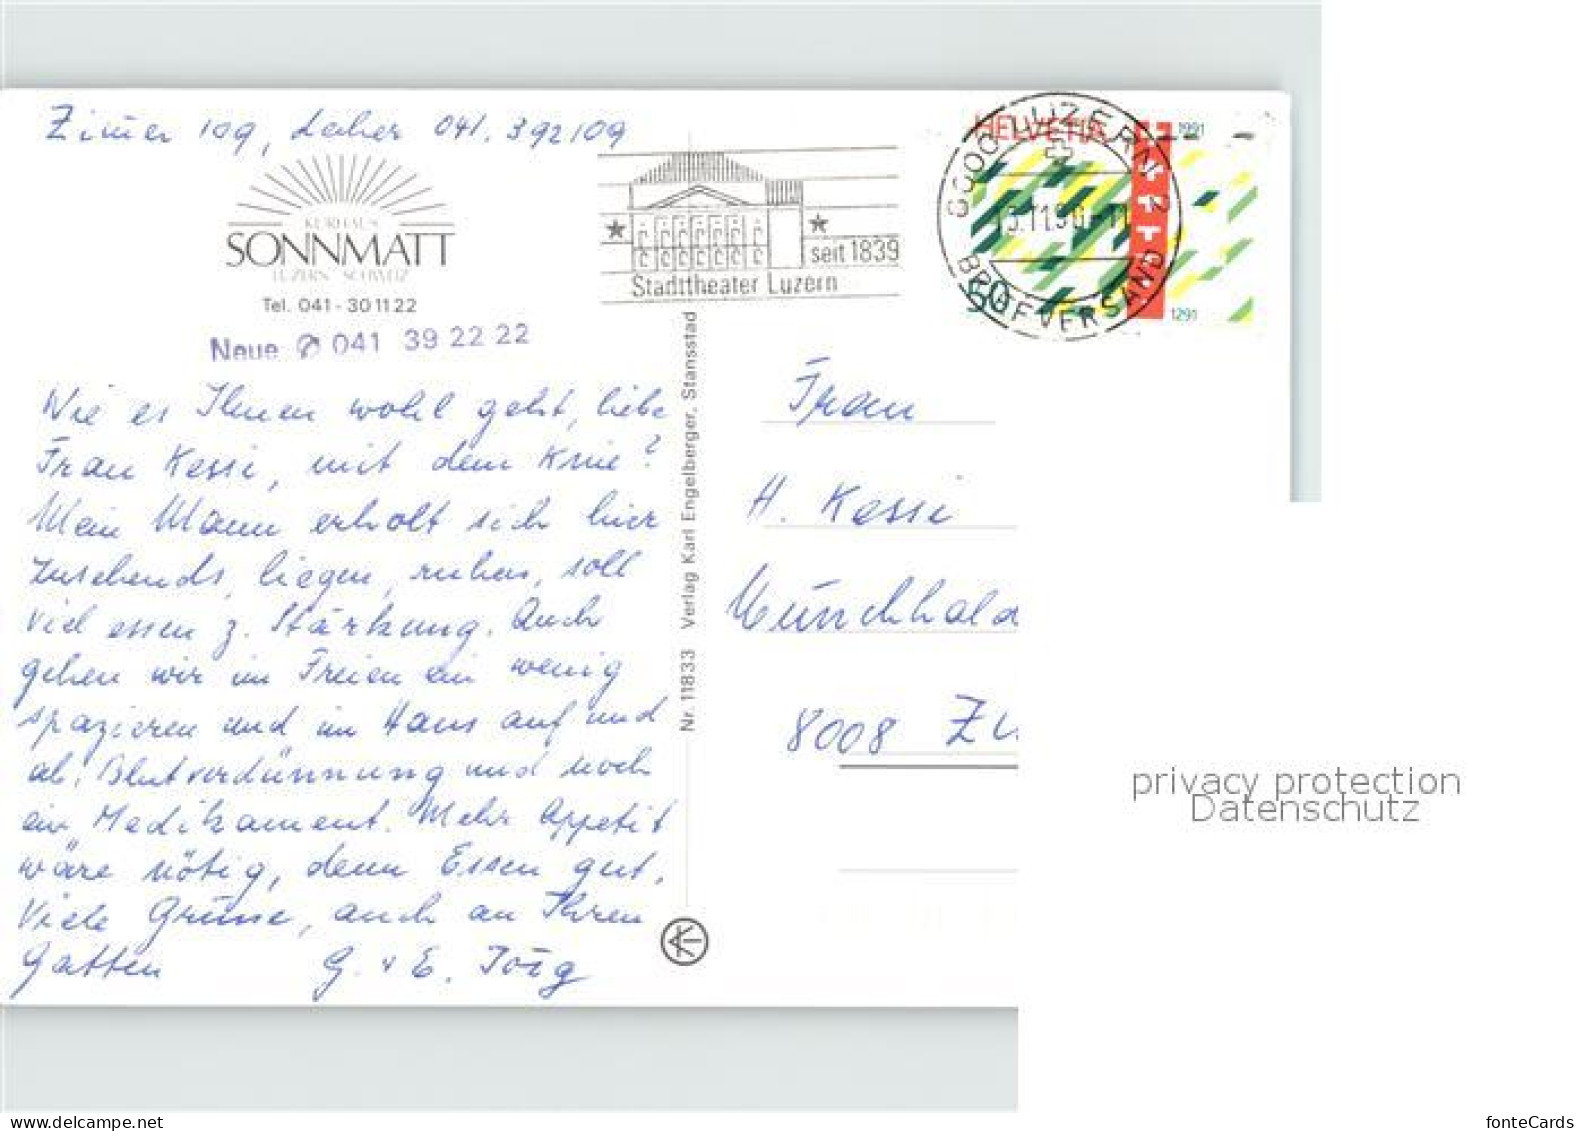 Zimer 109, Lecher 041. 392109
KURHAUS
SONNMATT
LUZERN SCHWEIZ
Tel. 041 - 30 11 22
Neue ✆ 041 39 22 22
Wie es Ihnen wohl geht, liebe
Frau Kessi, mit dem Knie?
Mein Mann erholt sich hier
zusehends, liegen, ruhen, soll
viel essen z. Stärkung. Auch
gehen wir im Freien ein wenig
spazieren und im Haus auf und
ab. Blutverdünnung und noch
ein Medikament. Mehr Appetit
wäre nötig, denn Essen gut.
Viele Grüsse, auch an Ihren
Gatten G. + E. Jörg
Nr. 11833 Verlag Karl Engelberger, Stansstad
seit 1839
Stadttheater Luzern
HELVETIA
1991
50
1291
6000 LUZERN 2
13.11.90-11
BRIEFVERSAND
Frau
H. Kessi
Münchhald
8008 Zü
privacy protection
Datenschutz
fonteCards